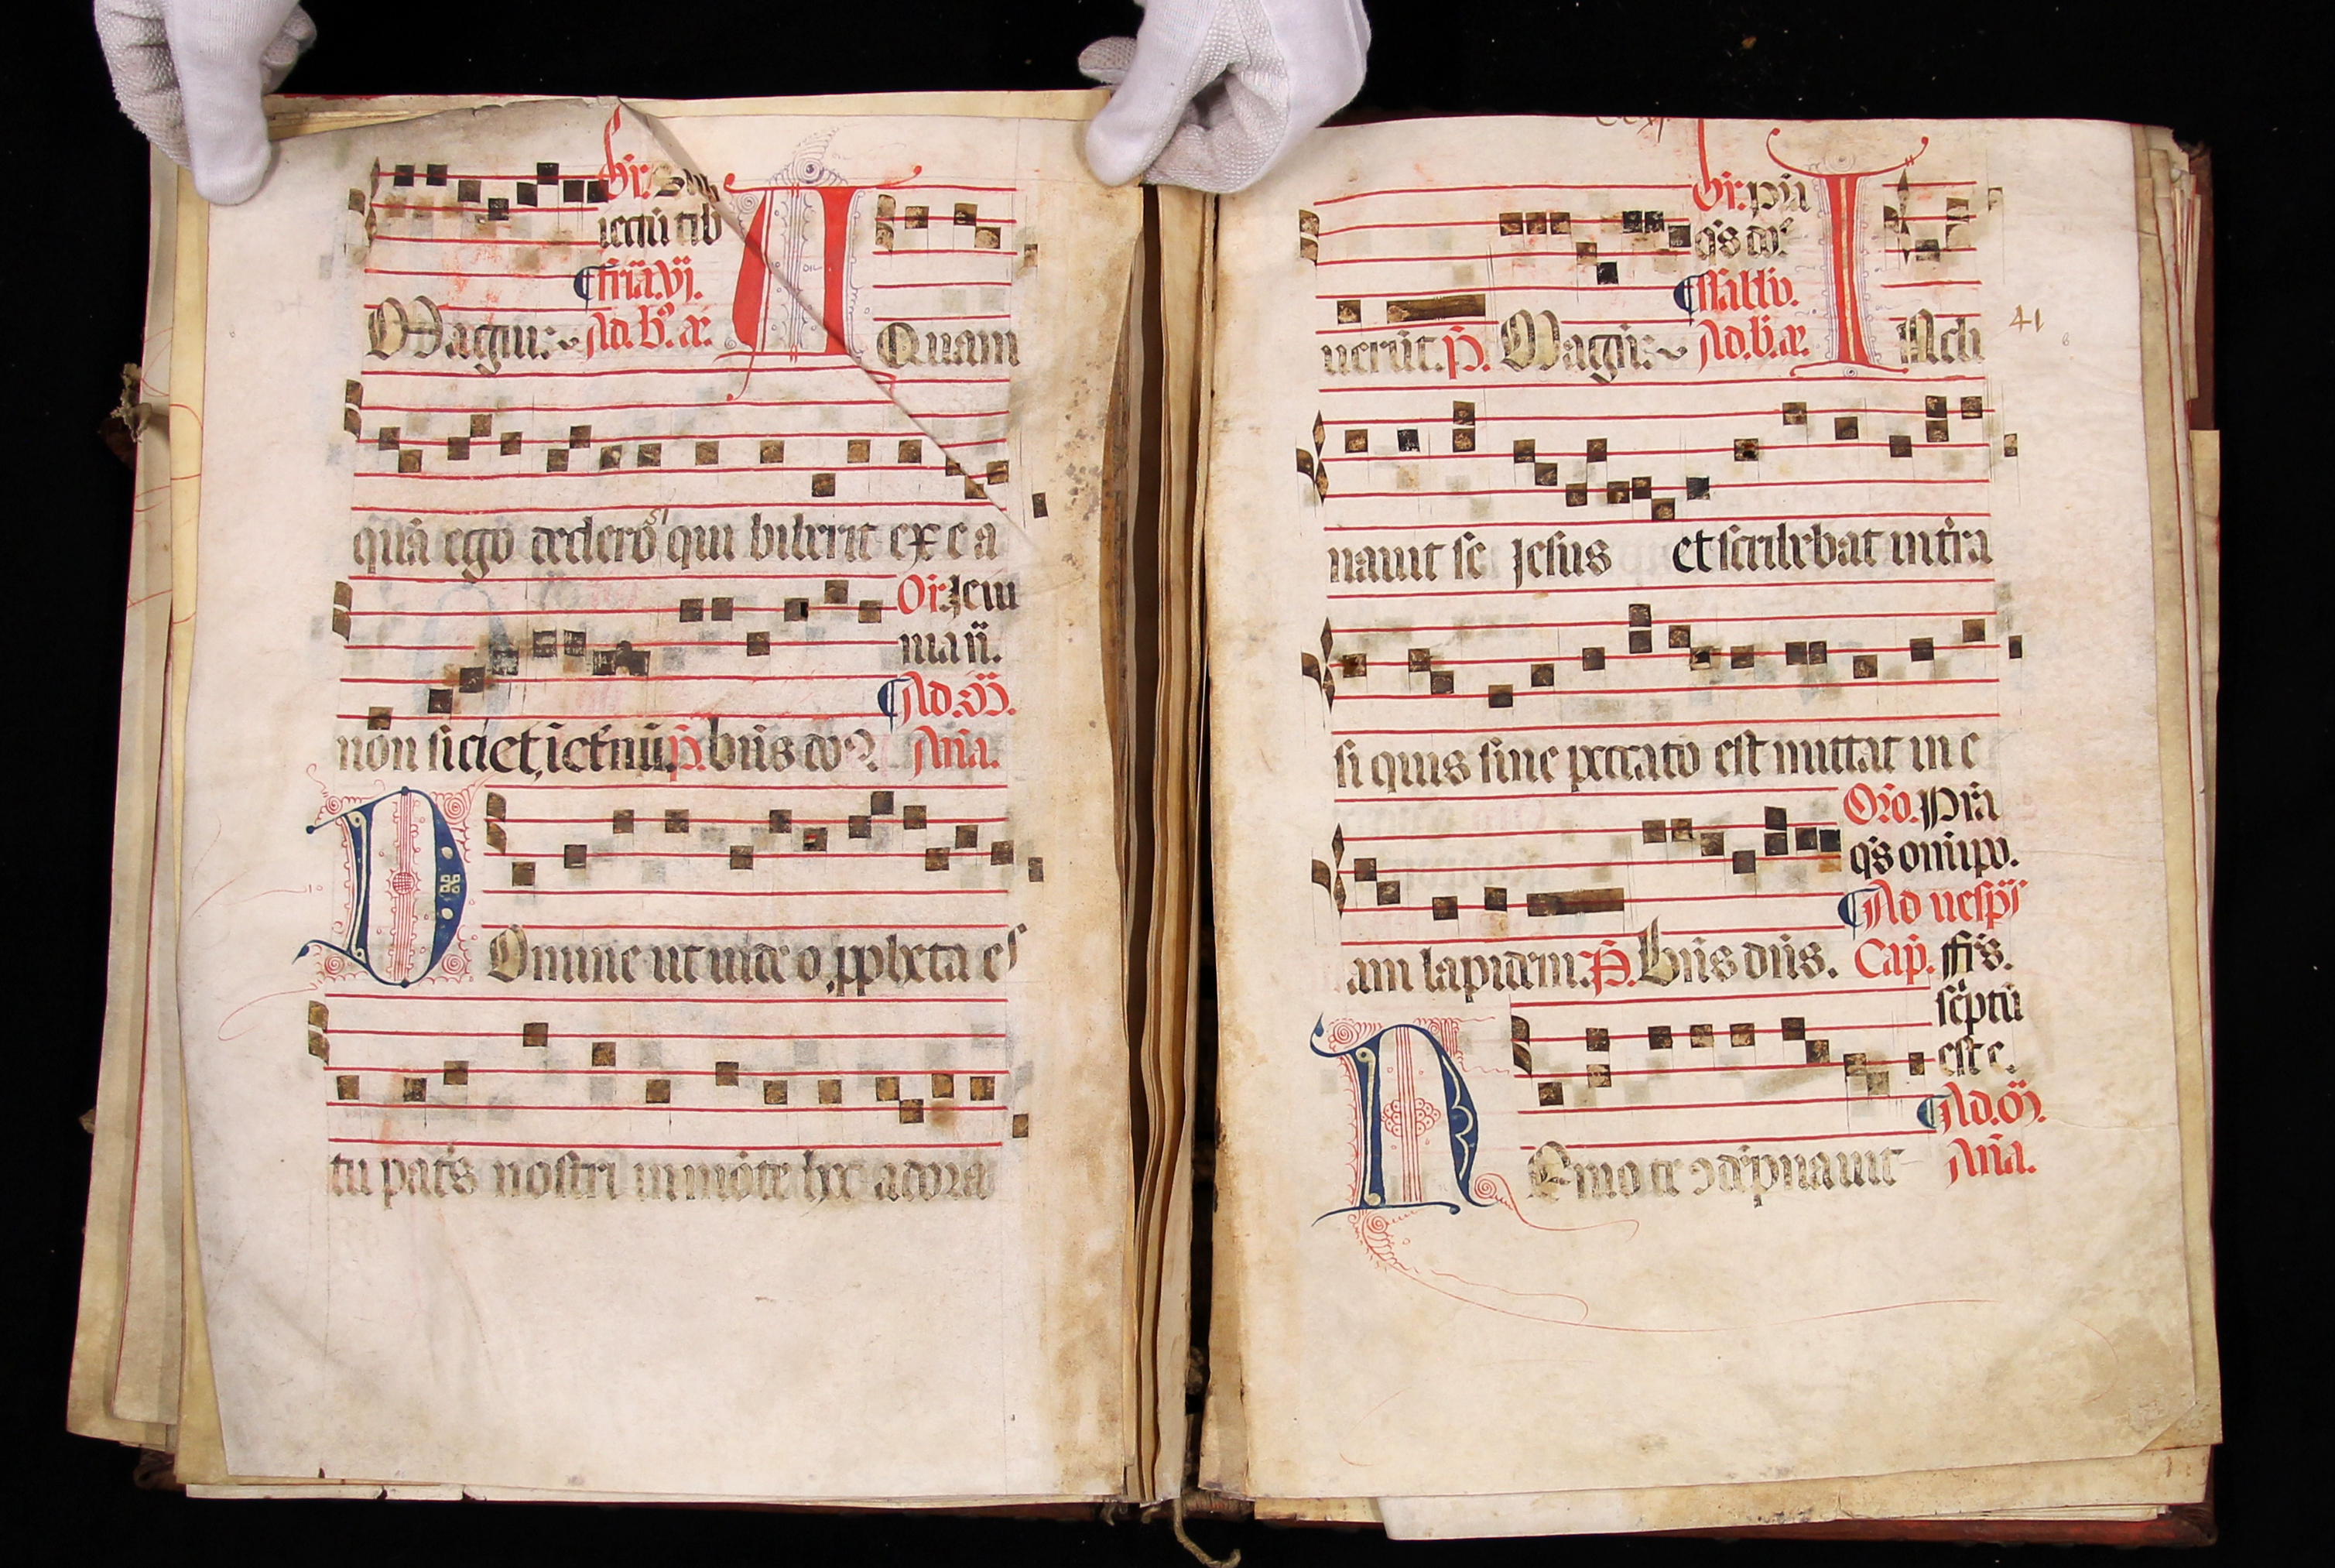 Or:
iectū tib
fria.vj.
Magnı: Ad.b. A Quam
quā ego dedero qui biberit ex ea
si
Or: Ieiu
nia
Ad.M.
non siciet, ı et̄nū. p̄. bn̄s do
An̄a.
Domine ut uideo ꝓpheta es
tu pat̄s nostri in mōte hoc adora
ccxj
Or:
q̄s
Sabbo.
uerūt. p̄. Magnı: Ad.b. INcli
41
nauit se Iesus et scribebat in t̄ra
si quis sine peccato est mittat in e
Oro. Pr̄a
q̄s om̄ipo.
Ad uesp̄s
am lapidem. p̄. Bn̄s dn̄s. Cap. ffr̄s.
sc̄ptū
est e.
Ad.M.
NEmo te ↄdēpnauit An̄a.